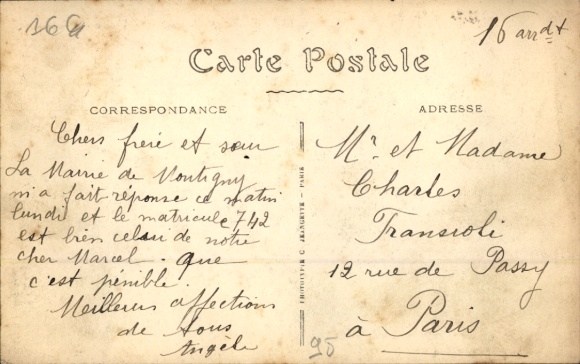 16G
16 arrdt
Carte Postale
CORRESPONDANCE
Chers frère et sœur
La Mairie de Montigny
m'a fait réponse ce matin
lundi et le matricule 742
est bien celui de notre
cher Marcel. que
c'est pénible.
Meilleurs affections
de tous
Angèle
PHOTOTYPIE C. JEANGETTE - PARIS
ADRESSE
Mr. et Madame
Charles
Transioli
12 rue de Passy
à Paris
95